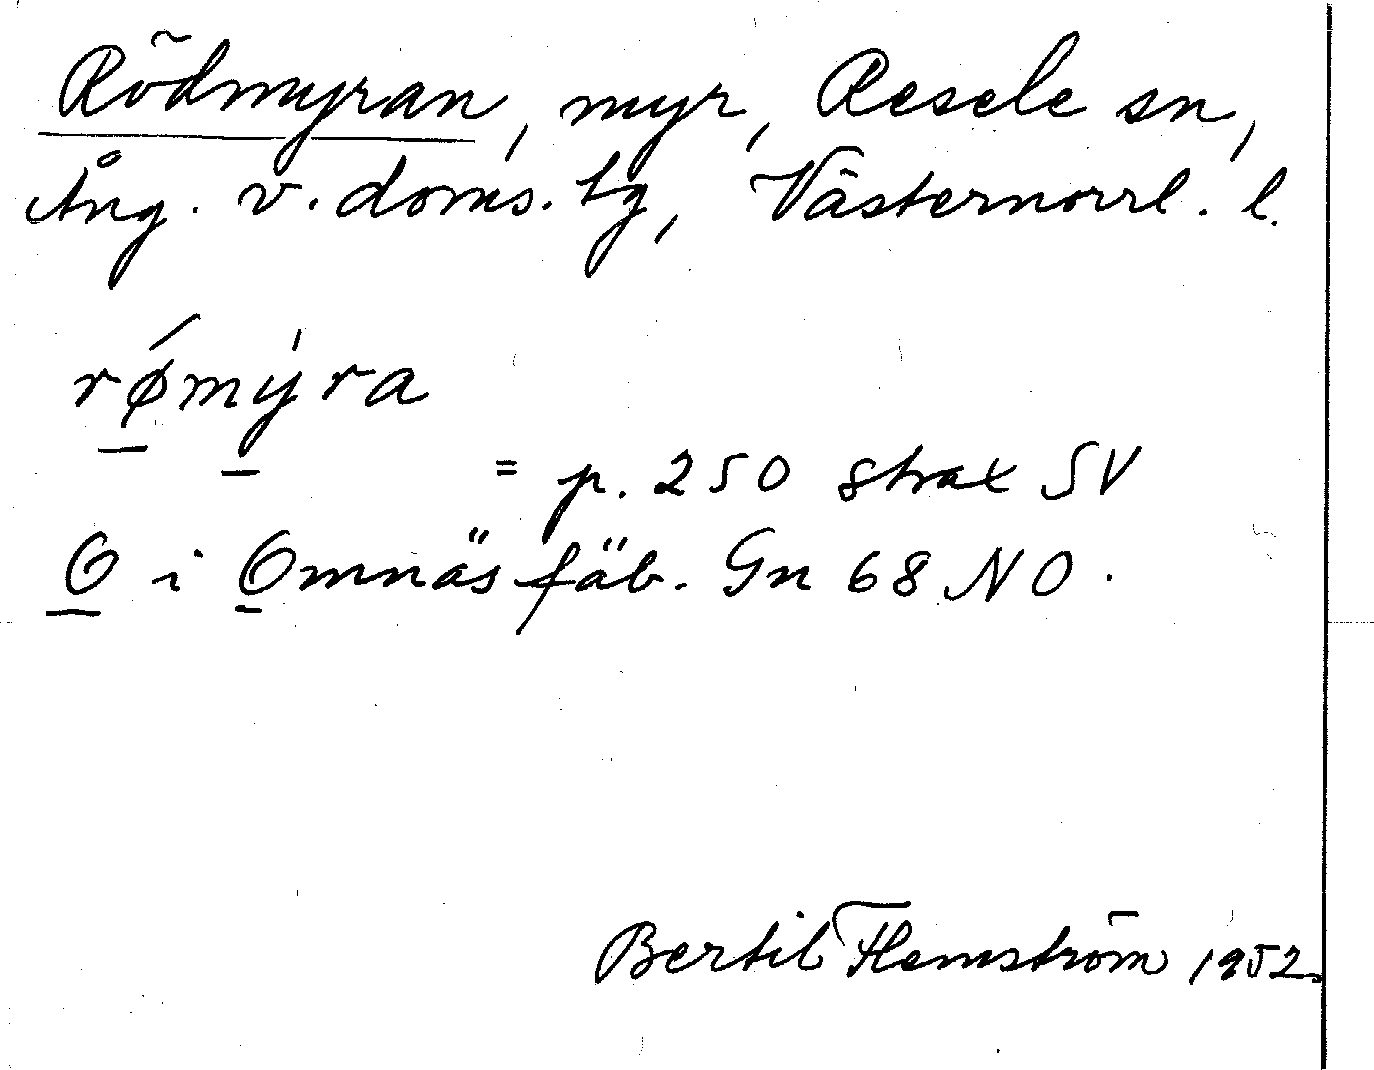 Rödmyran, myr, Resele sn,
Ång. v. doms. tg, Västernorrl. l.
rǿmýra
= p. 250 strax SV
O i Omnäs fäb. Gn 68 NO.
Bertil Flemström 1952.